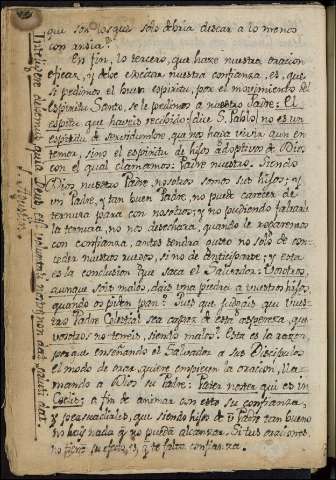 que son los que solo debria desear a lo menos
con ansia?
En fin, lo tercero, que haze nuestra oracion
eficaz, y debe excitar nuestra confianza, es, que
si pedimos el buen espiritu, por el movimiento del
Espiritu Santo, se le pedimos a nuestro Padre: El
espiritu que haveis recibido, dice S. Pablo, no es un
espiritu de servidumbre, que nos haga vivir aun en
temor, sino el espiritu de hijos adoptivos de Dios
con el qual clamamos: Padre nuestro. Siendo
Dios nuestro Padre, nosotros somos sus hijos; y
un Padre, y tan buen Padre, no puede carecer de
ternura para con nosotros; y no pudiendo faltarle
la ternura, no nos desechará, quando le rogaremos
con confianza, antes tendrá gusto no solo de con-
ceder nuestros ruegos, si no de anticiparse; y esta
es la conclusion que saca el Salvador: Vosotros,
aunque sois malos, dais una piedra a vuestros hijos,
quando os piden pan? Pues que juzgais que vues-
tro Padre Celestial sea capaz de esta aspereza, que
vosotros no teneis, siendo malos? Esta es la razon
porque enseñando el Salvador a sus Discipulos
el modo de orar, quiere empiezen la oracion, lla-
mando a Dios su Padre: Pater noster qui es in
Coelis: a fin de animar con esto su confianza,
y persuadirles, que siendo hijos de Padre tan bueno
no hay nada que no puedan alcanzar. Si tus oraciones
no su efecto, es que te falta confianza.